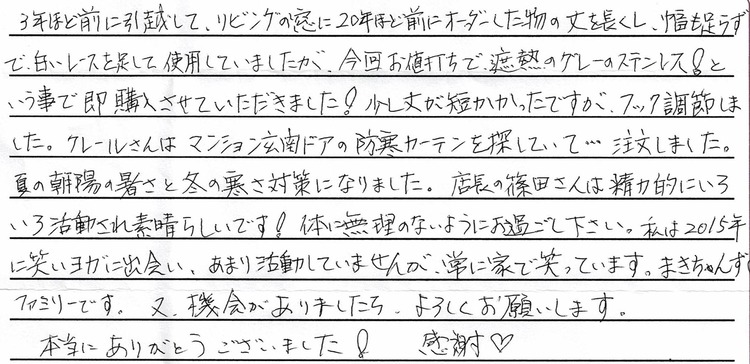 3年ほど前に引越して、リビングの窓に20年ほど前にオーダーした物の丈を長くし、幅も足らず
で、白いレースを足して使用していましたが、今回お値打ちで、遮熱のグレーのステンレス!と
いう事で即購入させていただきました!少し丈が短かかったですが、フック調節しま
した。クレールさんはマンション玄関ドアの防寒カーテンを探していて…注文しました。
夏の朝陽の暑さと冬の寒さ対策になりました。店長の篠田さんは精力的にいろ
いろ活動され素晴らしいです!体に無理のないようにお過ごし下さい。私は2015年
に笑いヨガに出会い、あまり活動していませんが、常に家で笑っています。まきちゃんず
ファミリーです。又、機会がありましたら、よろしくお願いします。
本当にありがとうございました! 感謝♡